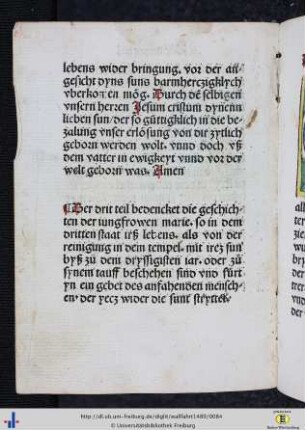 lebens wider bringung. vor der an⸗
gesicht dyns suns barmherczigklych
vberkomen mög. Durch dē selbigen
vnsern herren Jesum cristum dynenn
lieben sun/der so güttigklich in die be⸗
zalung vnser erlösung von dir zytlich
geborn werden wolt. vnnd doch vß
dem vatter in ewigkeyt vnnd vor der
welt geborn was. Amen
Der drit teil bedencket die geschich⸗
ten der iungfrowen marie. so in dem
dritten staat irß lebens. als von der
reinigung in dem tempel. mit irez sun
byß zů dem dryssigisten iar. oder zů
synem tauff beschehen sind vnd fürt
yn ein gebet des anfahenden mensch⸗
en. der recz wider die sünt
http://dl.ub.uni-freiburg.de/diglit/wallfahrt1480/0084
© Universitätsbibliothek Freiburg